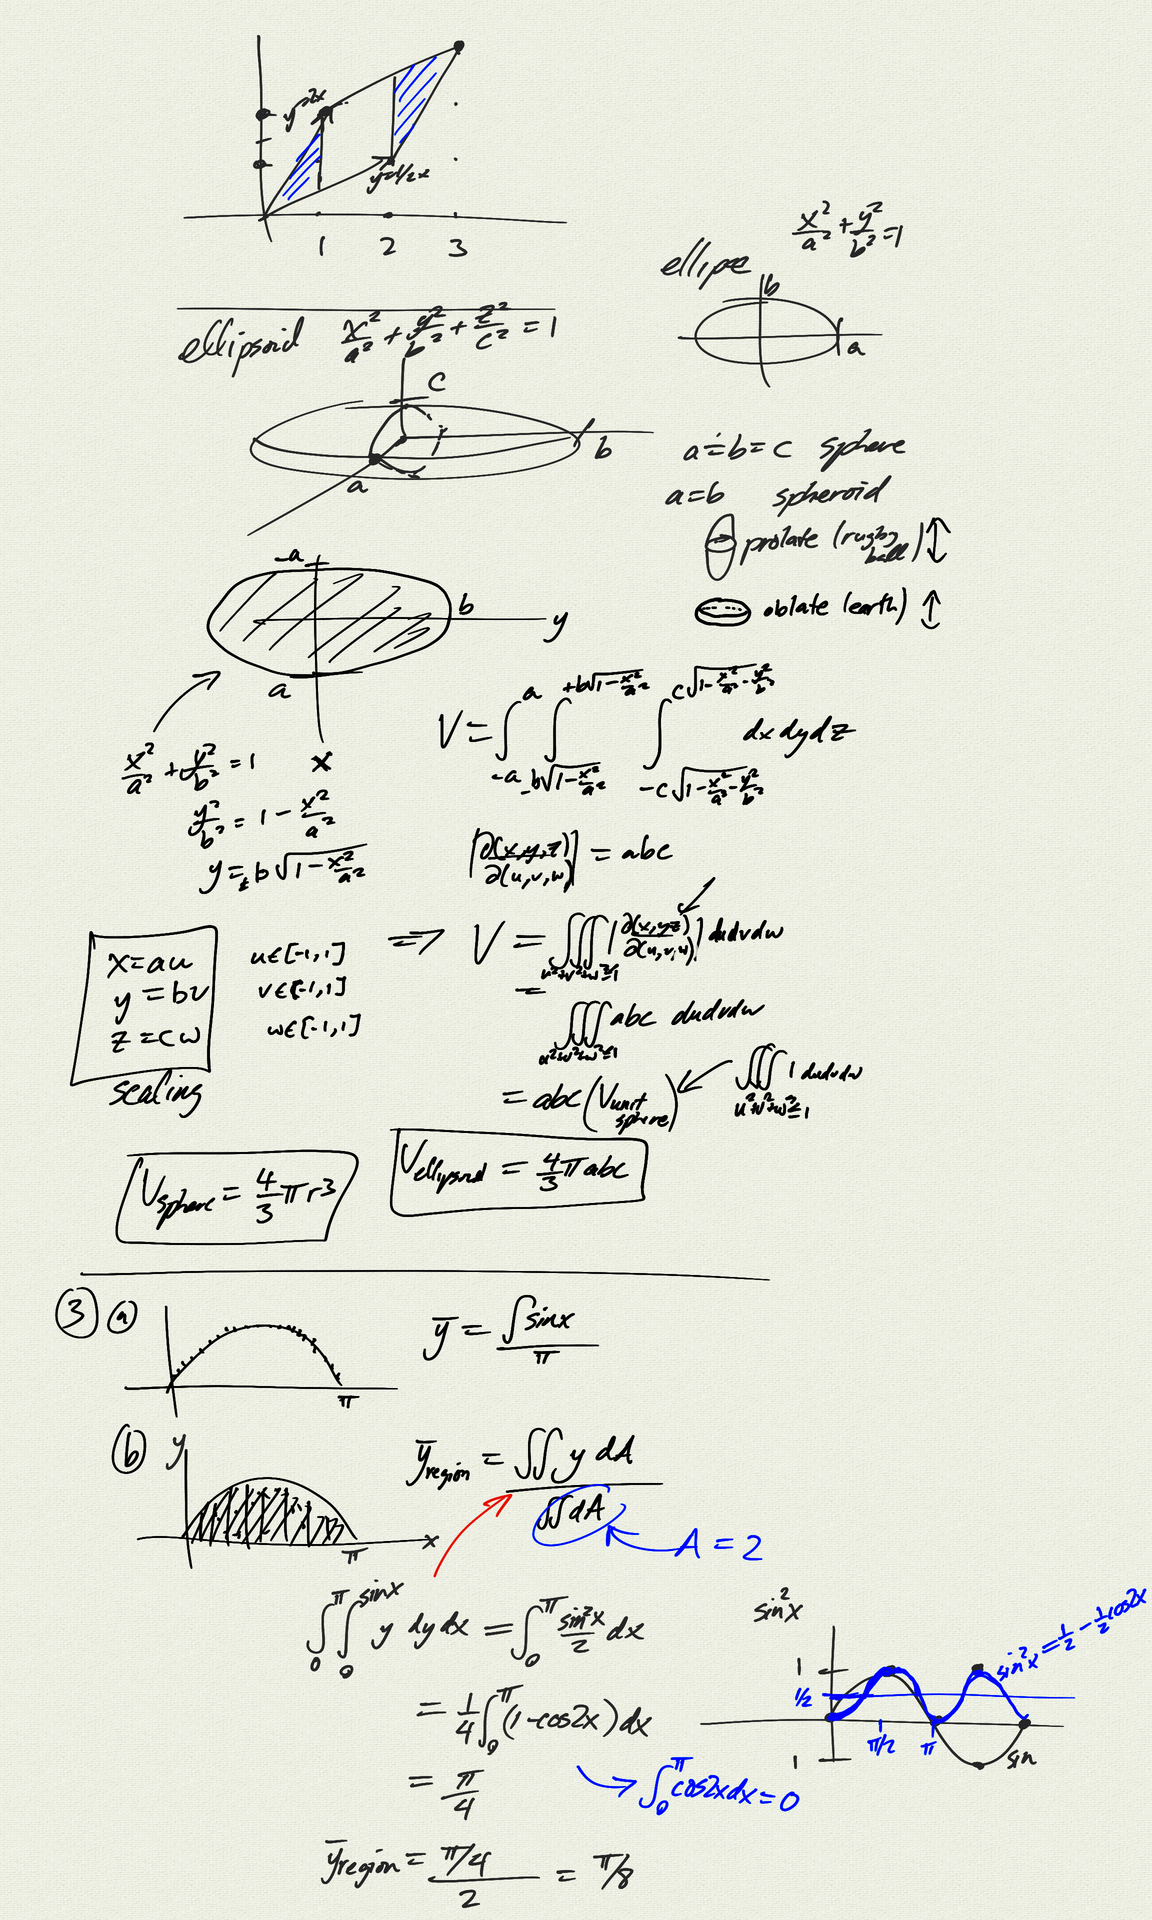 y=2x
y=1/2x
1 2 3
x²/a² + y²/b² = 1
ellipse
b
a
ellipsoid x²/a² + y²/b² + z²/c² = 1
c
b
a
a=b=c sphere
a=b spheroid
prolate (rugby ball)
oblate (earth)
-a
b
y
a
x
x²/a² + y²/b² = 1
y²/b² = 1 - x²/a²
y = ± b√(1 - x²/a²)
V = ∫_{-a}^{a} ∫_{-b√(1-x²/a²)}^{+b√(1-x²/a²)} ∫_{-c√(1-x²/a²-y²/b²)}^{c√(1-x²/a²-y²/b²)} dx dy dz
|∂(x,y,z)/∂(u,v,w)| = abc
x=au u∈[-1,1]
y=bv v∈[-1,1]
z=cw w∈[-1,1]
scaling
⇒ V = ∭_{u²+v²+w²≤1} |∂(x,y,z)/∂(u,v,w)| du dv dw
= ∭_{u²+v²+w²≤1} abc du dv dw
= abc (V unit sphere) ∭_{u²+v²+w²≤1} 1 du dv dw
V sphere = 4/3 π r3
V ellipsoid = 4/3 π abc
③ ⓐ
π
ȳ = ∫ sinx / π
ⓑ y
x
π
ȳ region = ∬ y dA / ∬ dA
A = 2
∫_0^π ∫_0^{sinx} y dy dx = ∫_0^π sin²x/2 dx
= 1/4 ∫_0^π (1-cos2x) dx
= π/4
∫_0^π cos2x dx = 0
ȳ region = π/4 / 2 = π/8
sin²x
sin²x = 1/2 - 1/2 cos2x
1
1/2
π/2 π
1
sin